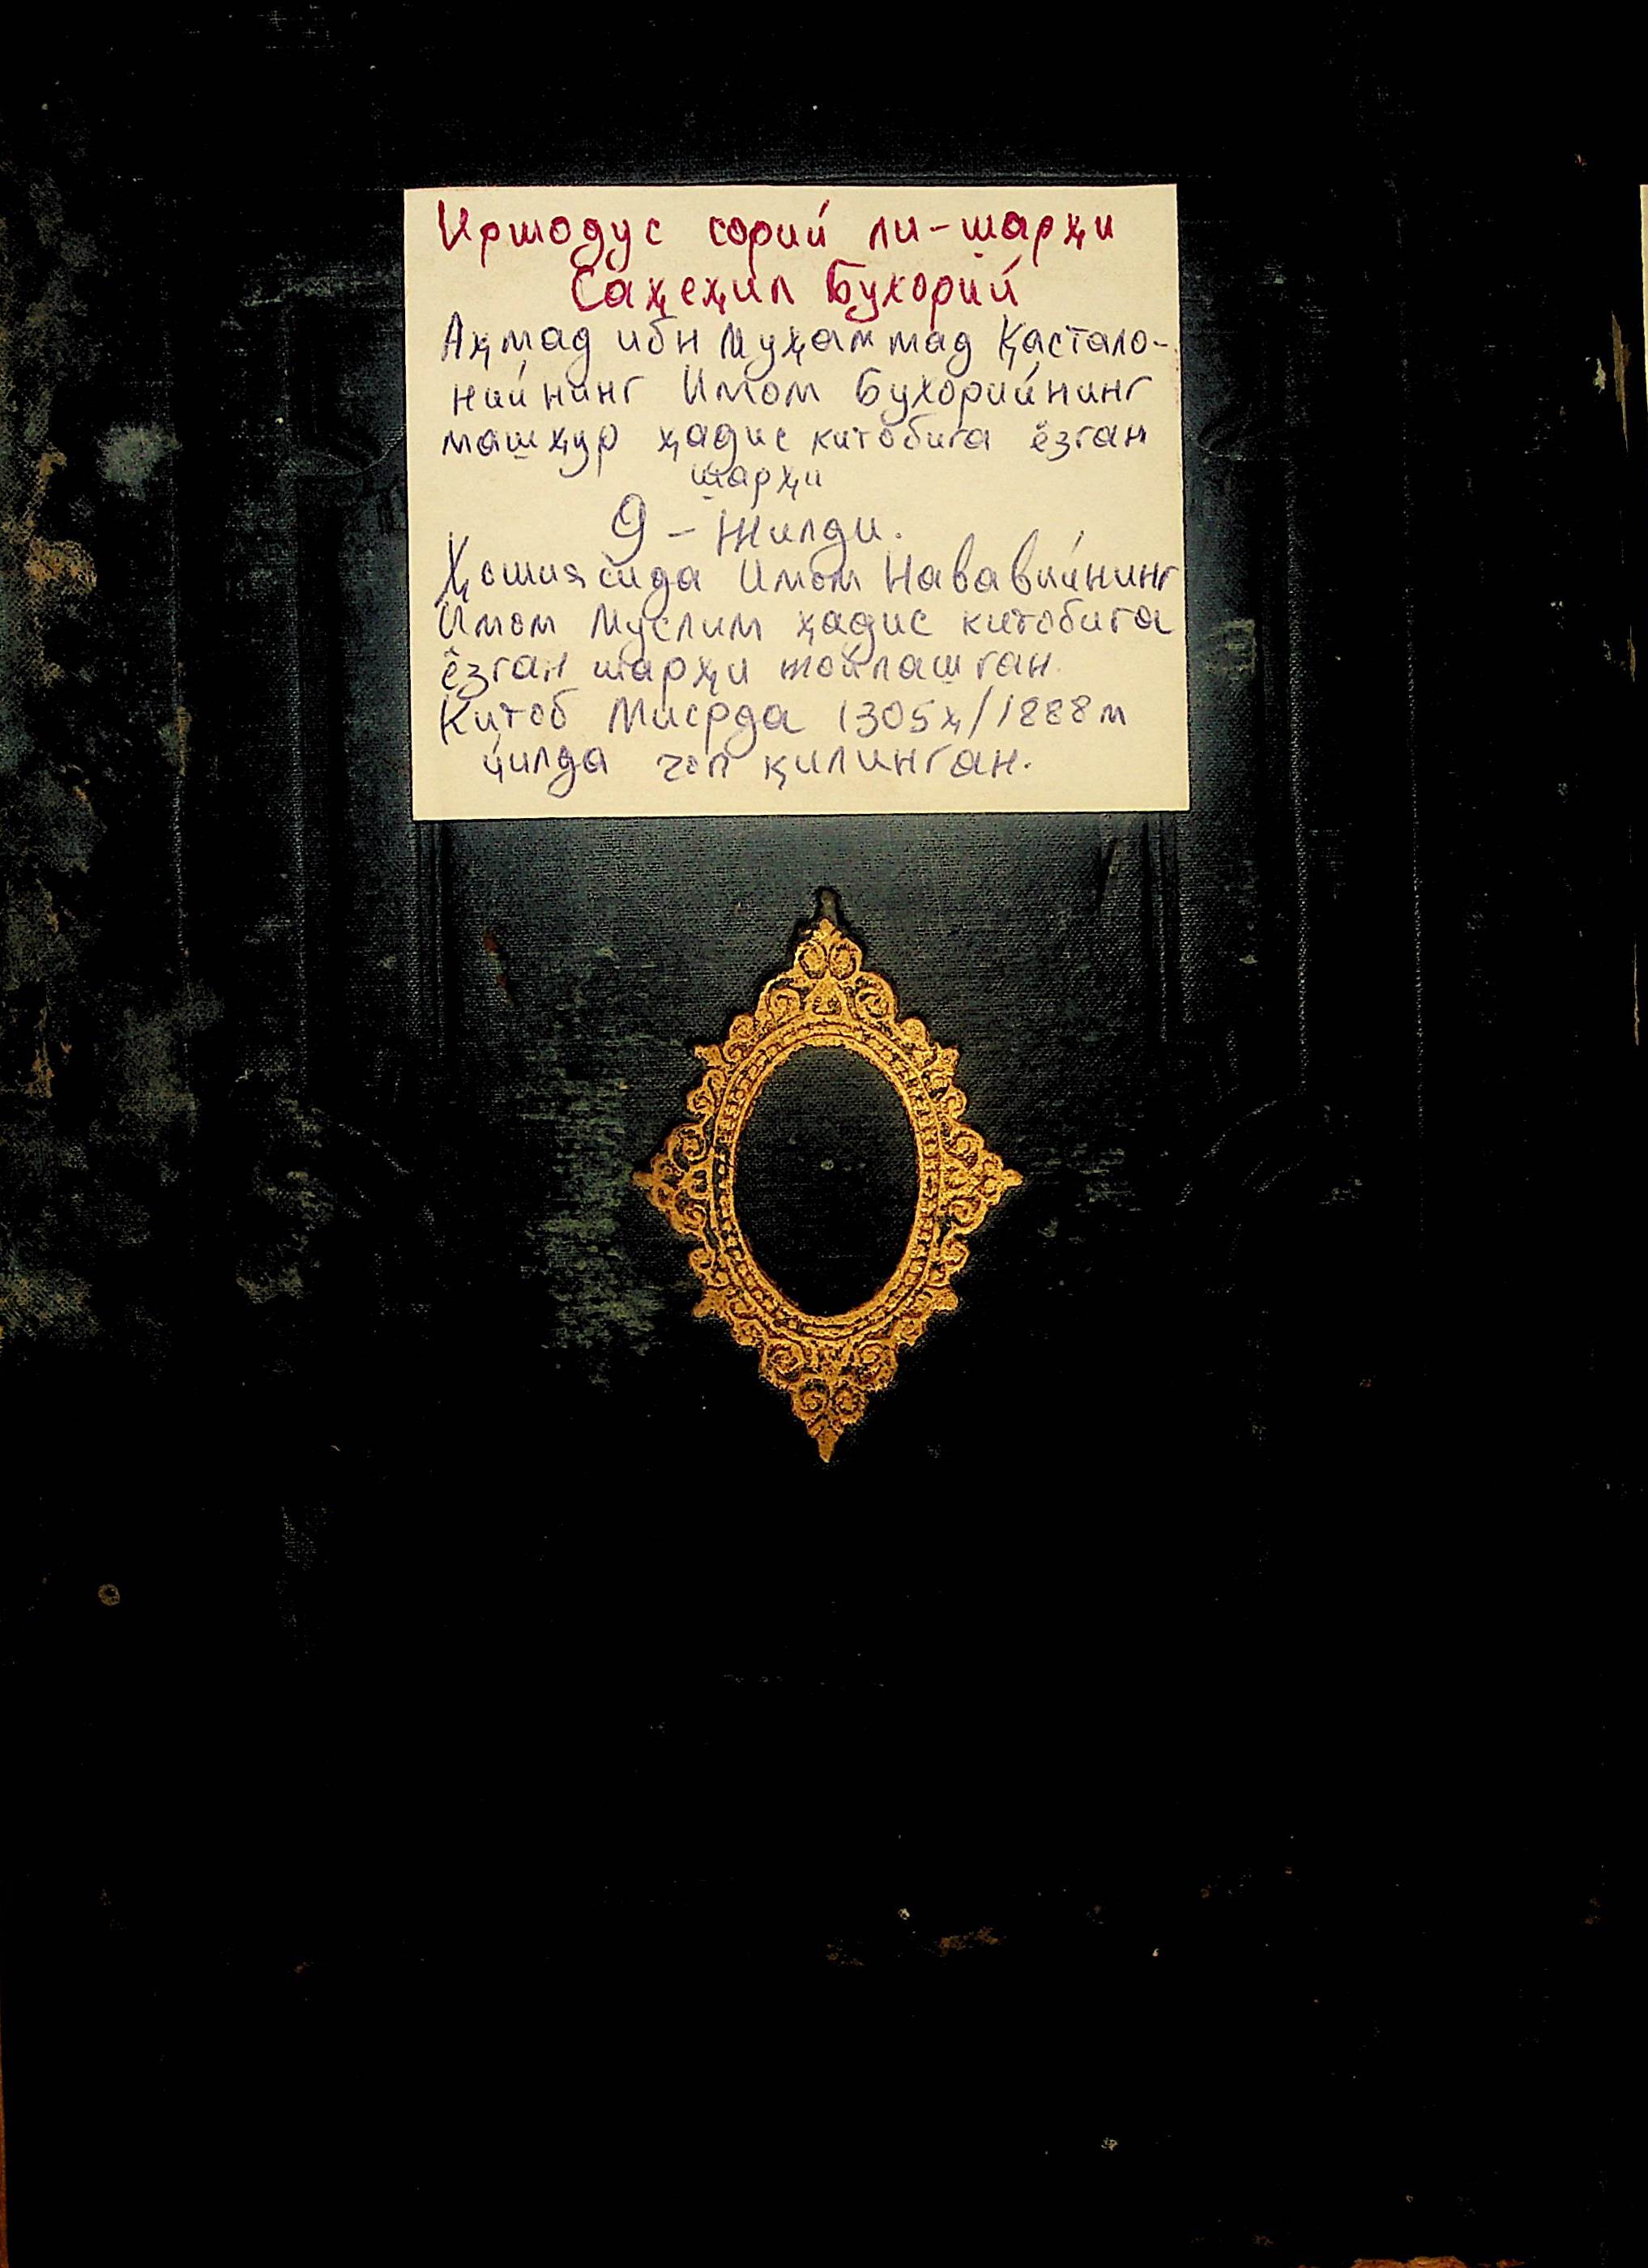 Иршодус сорий ли-шарҳи
Саҳеҳил Бухорий
Аҳмад ибн Муҳаммад Қастало-
нийнинг Имом Бухорийнинг
машҳур ҳадис китобига ёзган
шарҳи
9 - жилди.
Ҳошиясида Имом Нававийнинг
Имом Муслим ҳадис китобига
ёзган шарҳи жойлашган.
Китоб Мисрда 1305ҳ/1888м
йилда чоп қилинган.